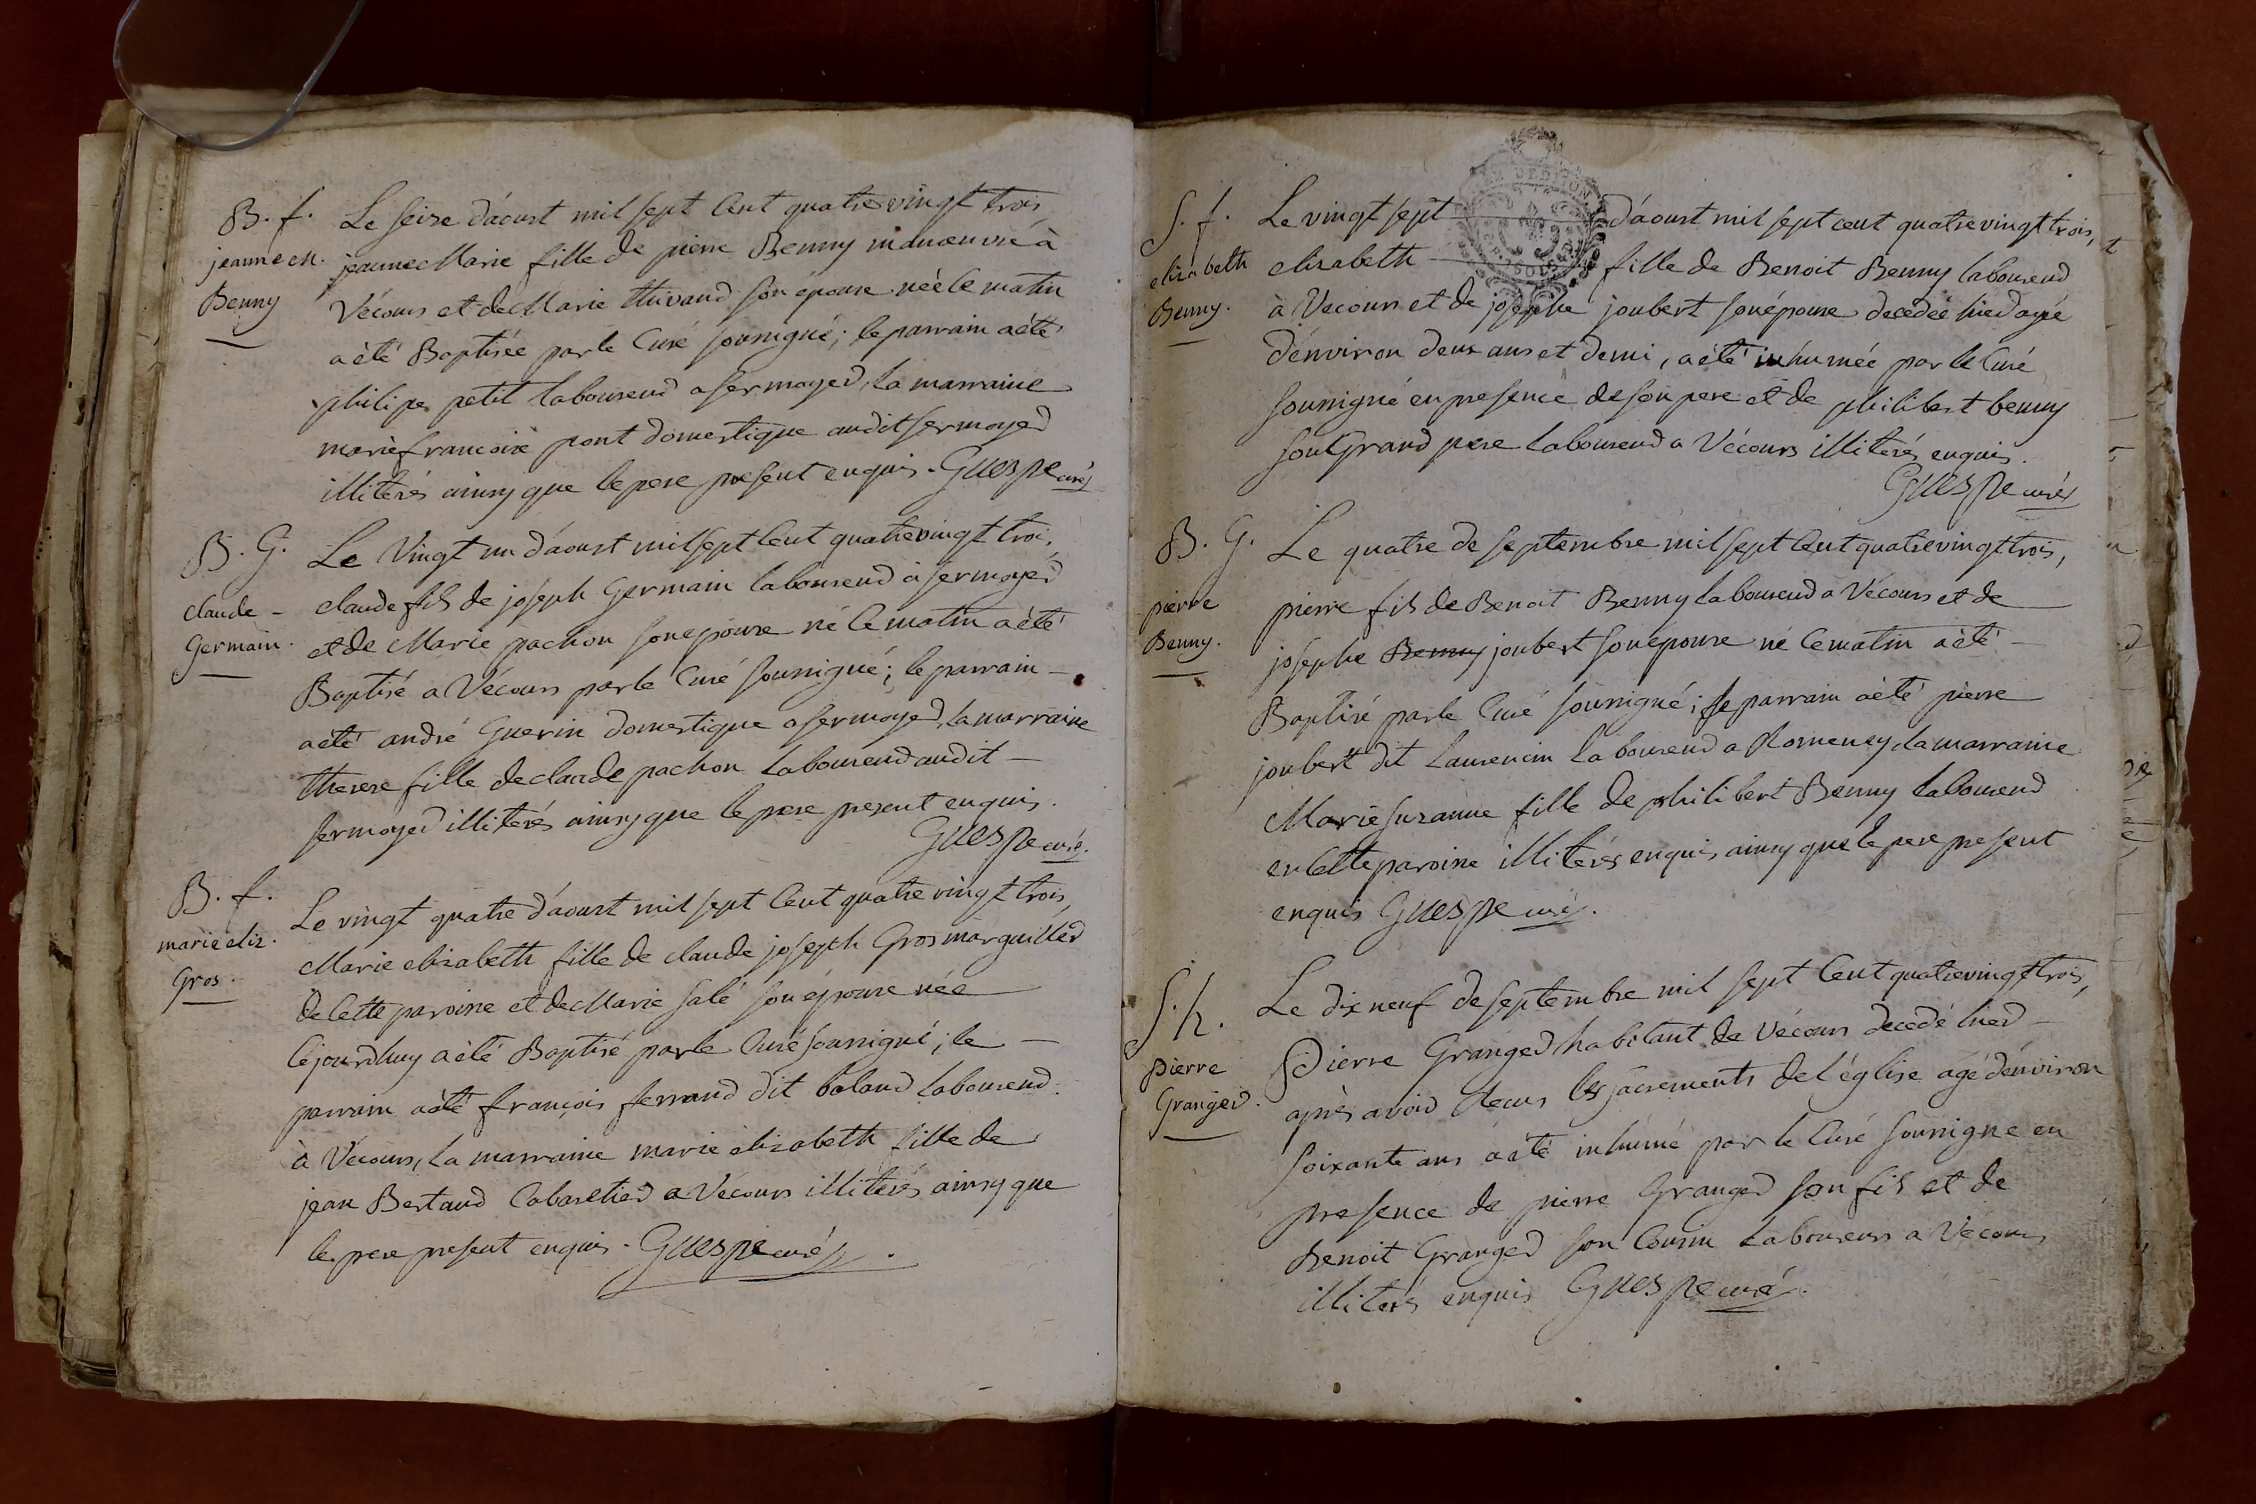 B. f.
jeanne M.
Benny
Le seize d'aoust mil sept Cent quatre vingt trois,
jeanne Marie fille de pierre Benny manœuvre à
Vécours et de Marie thivaud son epouse née le matin
a été Baptisée par le Curé soussigné; le parrain a été
philipe petit laboureur a sermoyer, la marraine
marie francoise pont domestique audit sermoyer
illiterés ainsy que le pere present enquis. Guespe curé
B. G.
claude -
Germain.
Le Vingt un d'aoust mil sept Cent quatre vingt troi,
claude fils de joseph Germain laboureur à sermoyer
et de Marie pachon son epouse né le matin a été
Baptisé a Vécours par le Curé soussigné; le parrain -
a été andré Guerin domestique a sermoyer, la marraine
therese fille de claude pachon laboureur audit -
sermoyer illiterés ainsy que le pere present enquis.
Guespe curé.
B. f.
marie eliz.
Gros.
Le vingt quatre d'aoust mil sept Cent quatre vingt trois,
Marie elisabeth fille de claude joseph Gros marguiller
de Cette paroisse et de Marie salé son épouse née
Cejourdhuy a été Baptisé par le Curé soussigné; le -
parrain a été françois ferrand dit balaud laboureur
à Vécours, la marraine marie élisabeth fille de
jean Bertaud Cabaretier a Vécours illiterés ainsy que
le pere present enquis. Guespe curé.
S. f.
elisabeth
Benny.
Le vingt sept d'aoust mil sept cent quatre vingt trois,
elisabeth fille de Benoit Benny laboureur
à Vecours et de josephe joubert son épouse decedée hier agée
d'environ deux ans et demi, a été inhumée par le Curé
soussigné en presence de son pere et de philibert benny
son Grand pere laboureur a Vécours illiterés enquis.
Guespe curé
B. G.
pierre
Benny.
Le quatre de septembre mil sept Cent quatre vingt trois,
pierre fils de Benoit Benny laboureur a Vécours et de
josephe Benny joubert son epouse né le matin a été -
Baptisé par le Curé soussigné; le parrain a été pierre
joubert dit Laurencin laboureur a Romenay, la marraine
Marie suzanne fille de philibert Benny laboureur
en Cette paroisse illiterés enquis ainsy que le pere present
enquis Guespe curé.
S. h.
pierre
Granger.
Le dix neuf de septembre mil sept Cent quatre vingt trois,
Pierre Granger habitant de Vécours decedé hier -
après avoir Reçus les sacrements de l'église agé d'environ
soixante ans a été inhumé par le Curé soussigne en
presence de pierre Granger son fils et de
Benoit Granger son Cousin Laboureurs a Vécours
illiterés enquis Guespe curé.